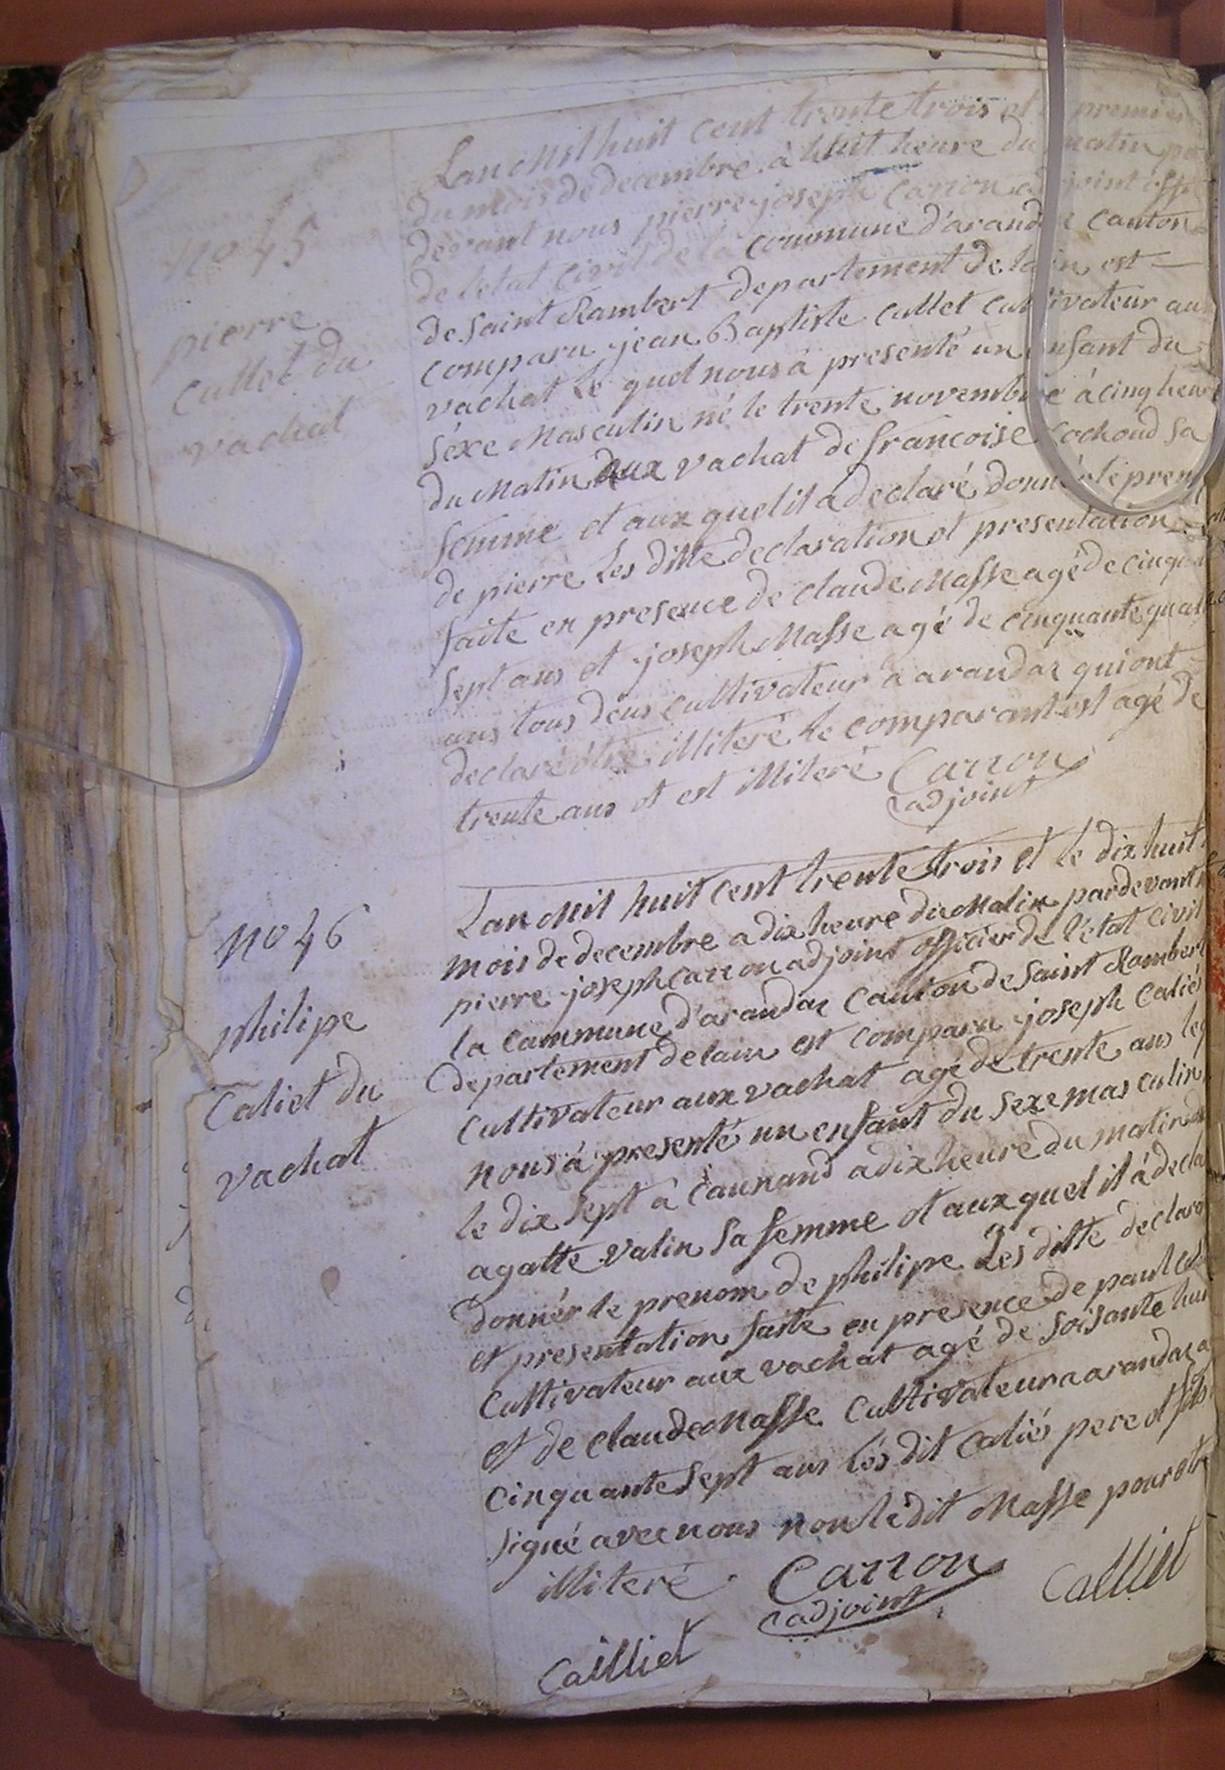 no 45
pierre
Cullet du
vachat
Lan Mil huit cent trente trois et le premier
du mois de decembre à huit heure du matin par
devant nous pierre joseph Carron adjoint offi
de letat Civil de la commune d'arandas canton
de Saint Rambert departement de lain est
comparu jean Baptiste Cullet Cultivateur aux
vachat le quel nous à presenté un enfant du
séxe Masculin né le trente novembre à cinq heure
du Matin aux vachat de francoise Cochoud sa
femme et aux quel il a declaré donnér le pren
de pierre Les ditte declaration et presentation
faite en presence de claude Masse agé de cinqu
Sept ans et joseph Masse agé de cinquante quat
ans tous deux cultivateur à arandas qui ont
declaré être illiteré le comparant est agé de
trente ans et est illiteré Carron
adjoint
no 46
philipe
Caliet du
vachat
Lan Mil huit cent trente trois et le dix huit
mois de decembre a dix heure du Matin pardevant
pierre joseph Carron adjoint officier de l'état civil
la Commune d'arandas Canton de Saint Rambert
departement de lain est comparu joseph Caliés
cultivateur aux vachat agé de trente ans leq
nous à presenté un enfant du sexe masculin
le dix sept à Caunand a dix heure du matin
agatte valin sa femme et aux quel il à decla
donnér le prenom de philipe Les ditte declara
et presentation faite en presence de paul
Cultivateur aux vachat agé de soisante hui
et de claude Masse Cultivateur a arandas a
cinquante Sept ans lés dit Caliés pere et fils
signé avec nous non lédit Masse pour être
illiteré Carron
adjoint
Cailliet
Cailliet